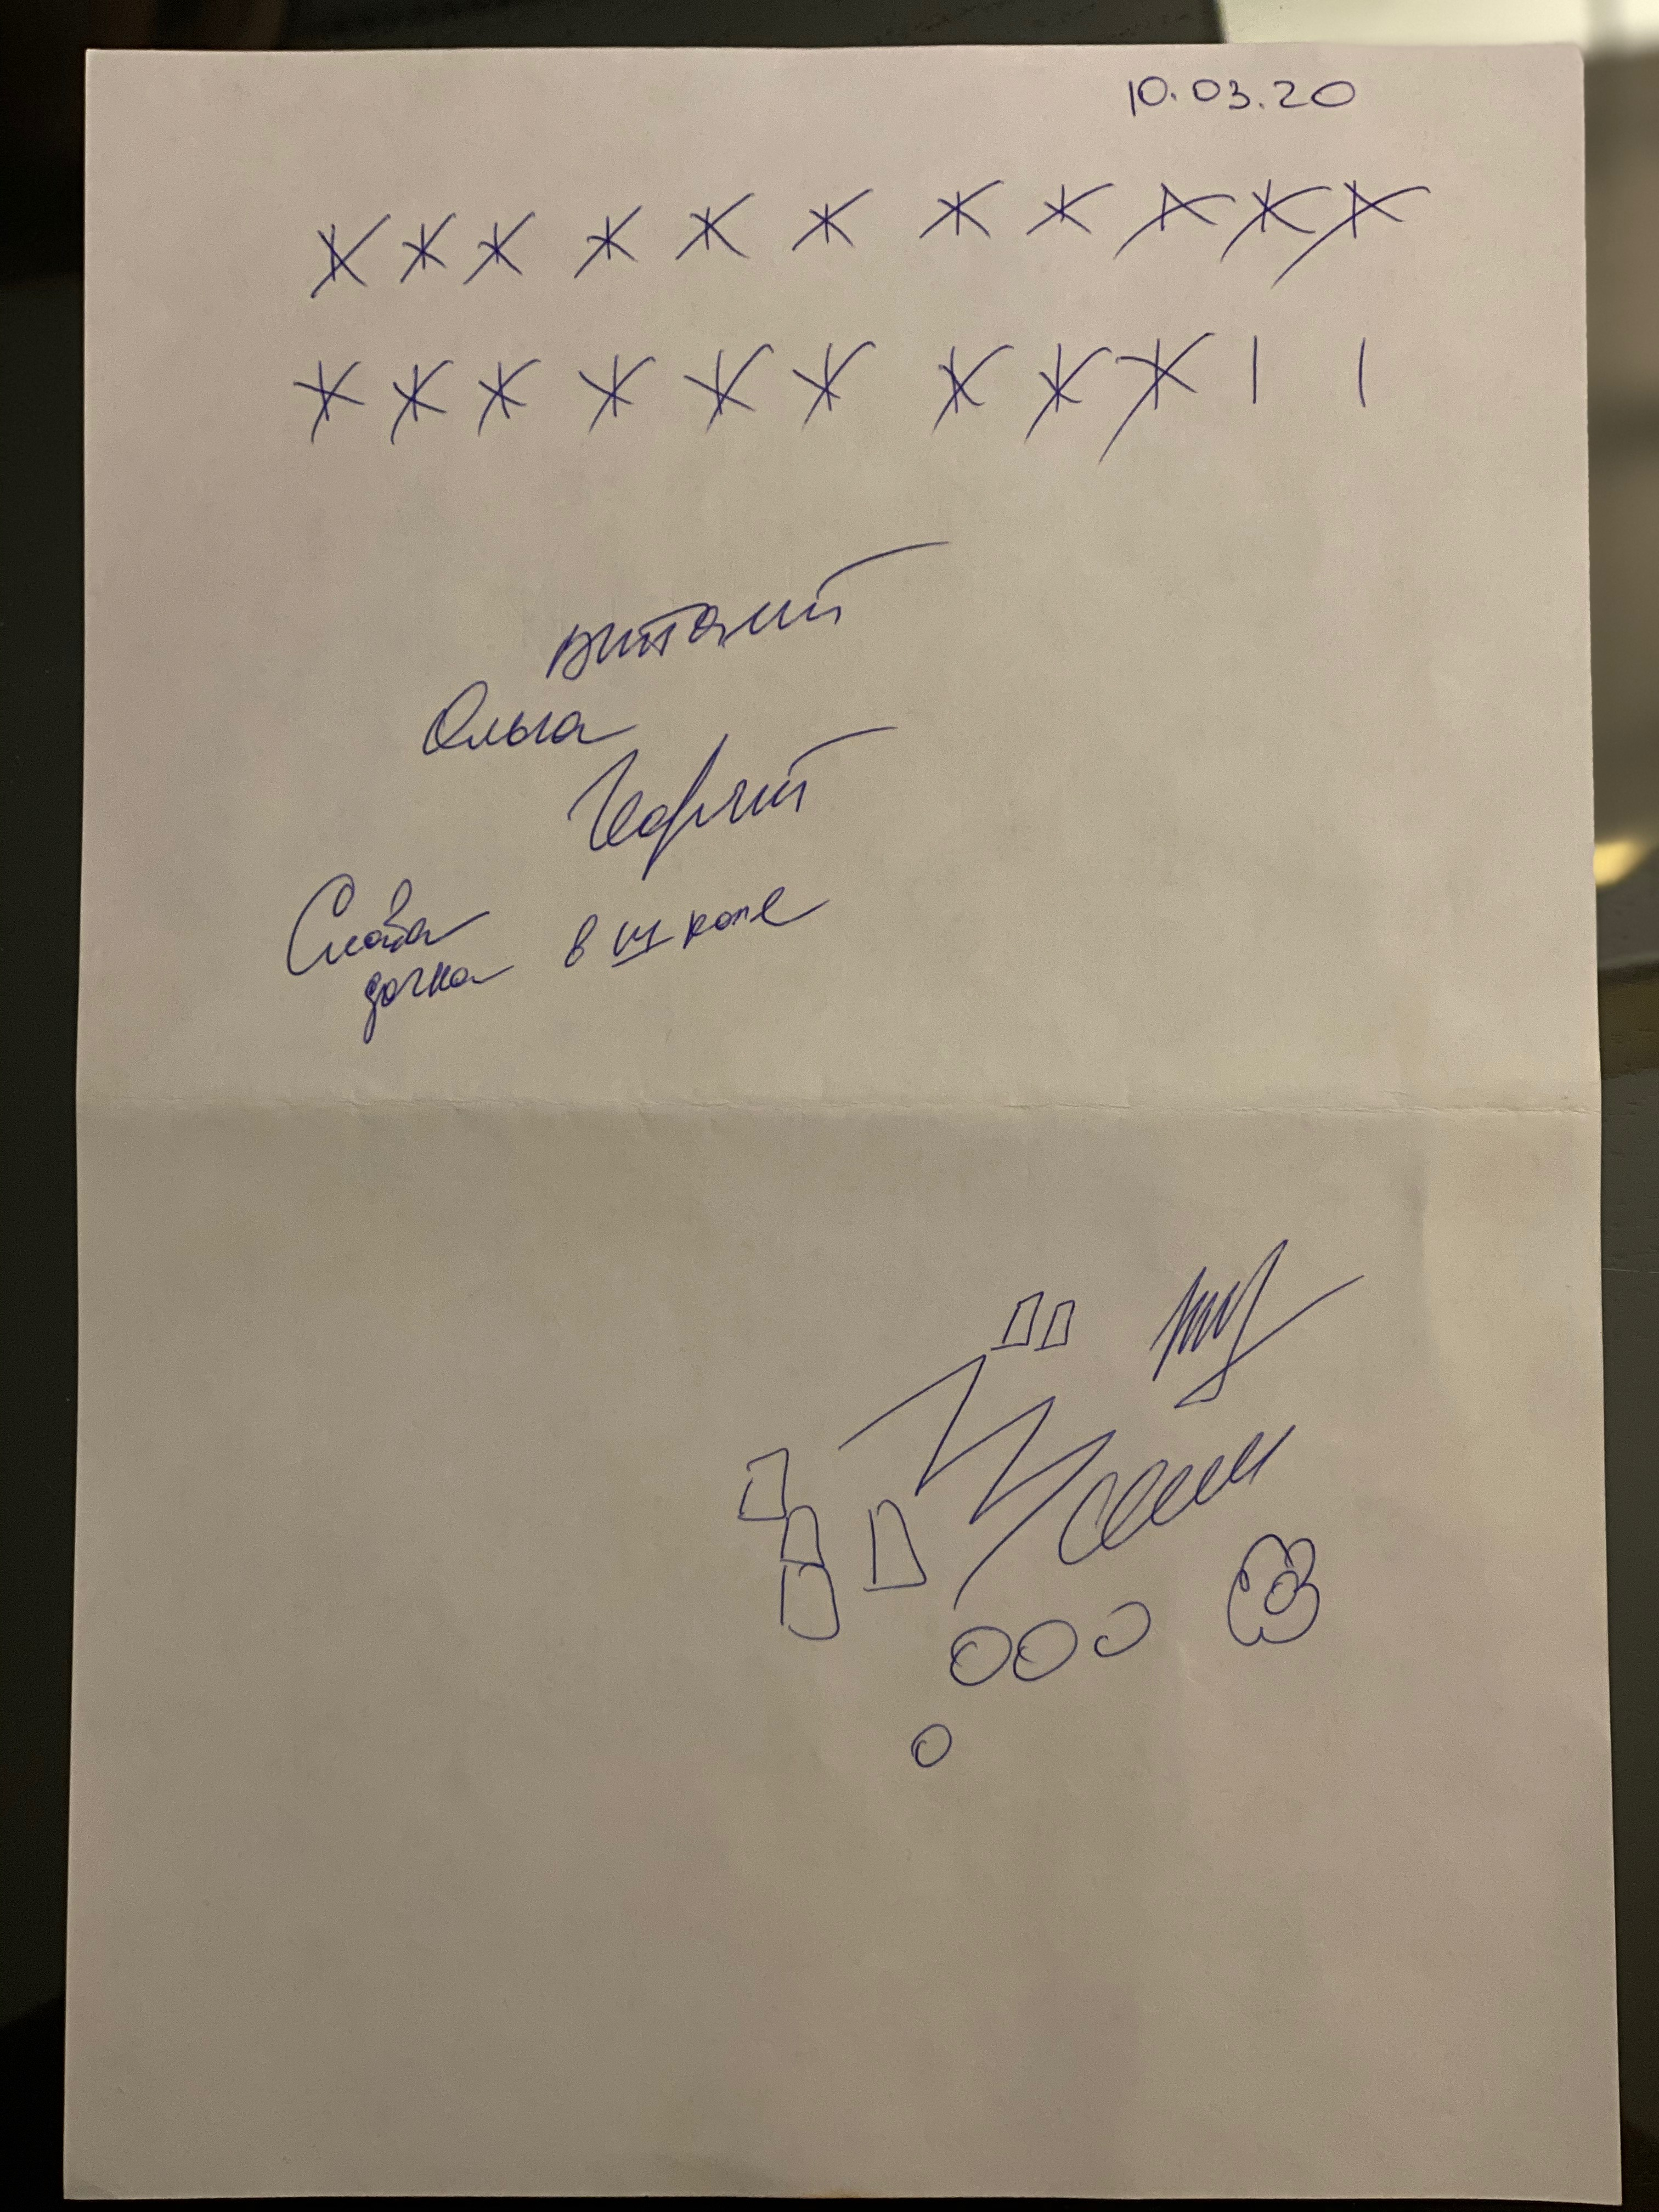 10.03.20
Виталий
Ольга
Георгий
Слава
дочка в школе